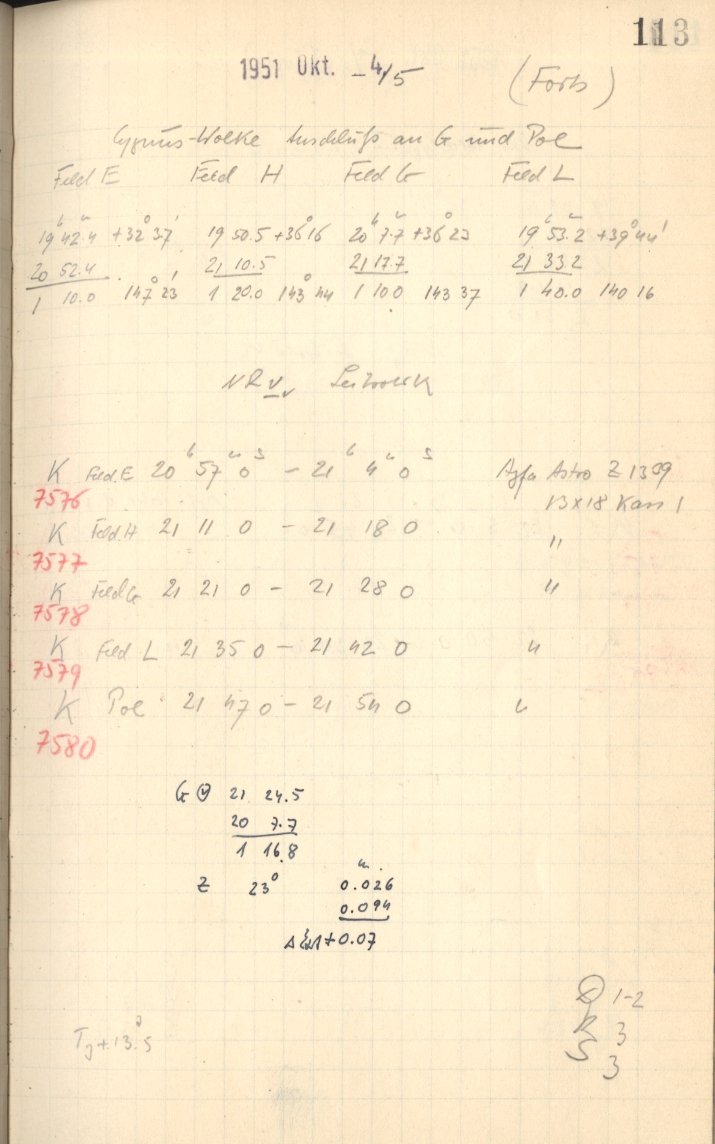 113
1951 Okt. 4/5 (Forts)
Cygnus-Wolke Anschluß an G und Pol
Feld E Feld H Feld G Feld L
19h 42.4m +32° 37' 19 50.5 +36° 16 20h 7.7m +36° 23 19h 53.2m +39° 44'
20 52.4 21 10.5 21 17.7 21 33.2
1 10.0 147° 23' 1 20.0 143° 44 1 10.0 143 37 1 40.0 140 16
K Feld E 20h 57m 0s – 21h 4m 0s Agfa Astro Z 1399
7576 13x18 Kass 1
K Feld H 21 11 0 – 21 18 0 "
7577
K Feld G 21 21 0 – 21 28 0 "
7578
K Feld L 21 35 0 – 21 42 0 "
7579
K Pol 21 47 0 – 21 54 0 "
7580
G 21 24.5
20 7.7
1 16.8
Z 23° 0.026
0.094
+0.07
D 1-2
R 3
S 3
+13.5